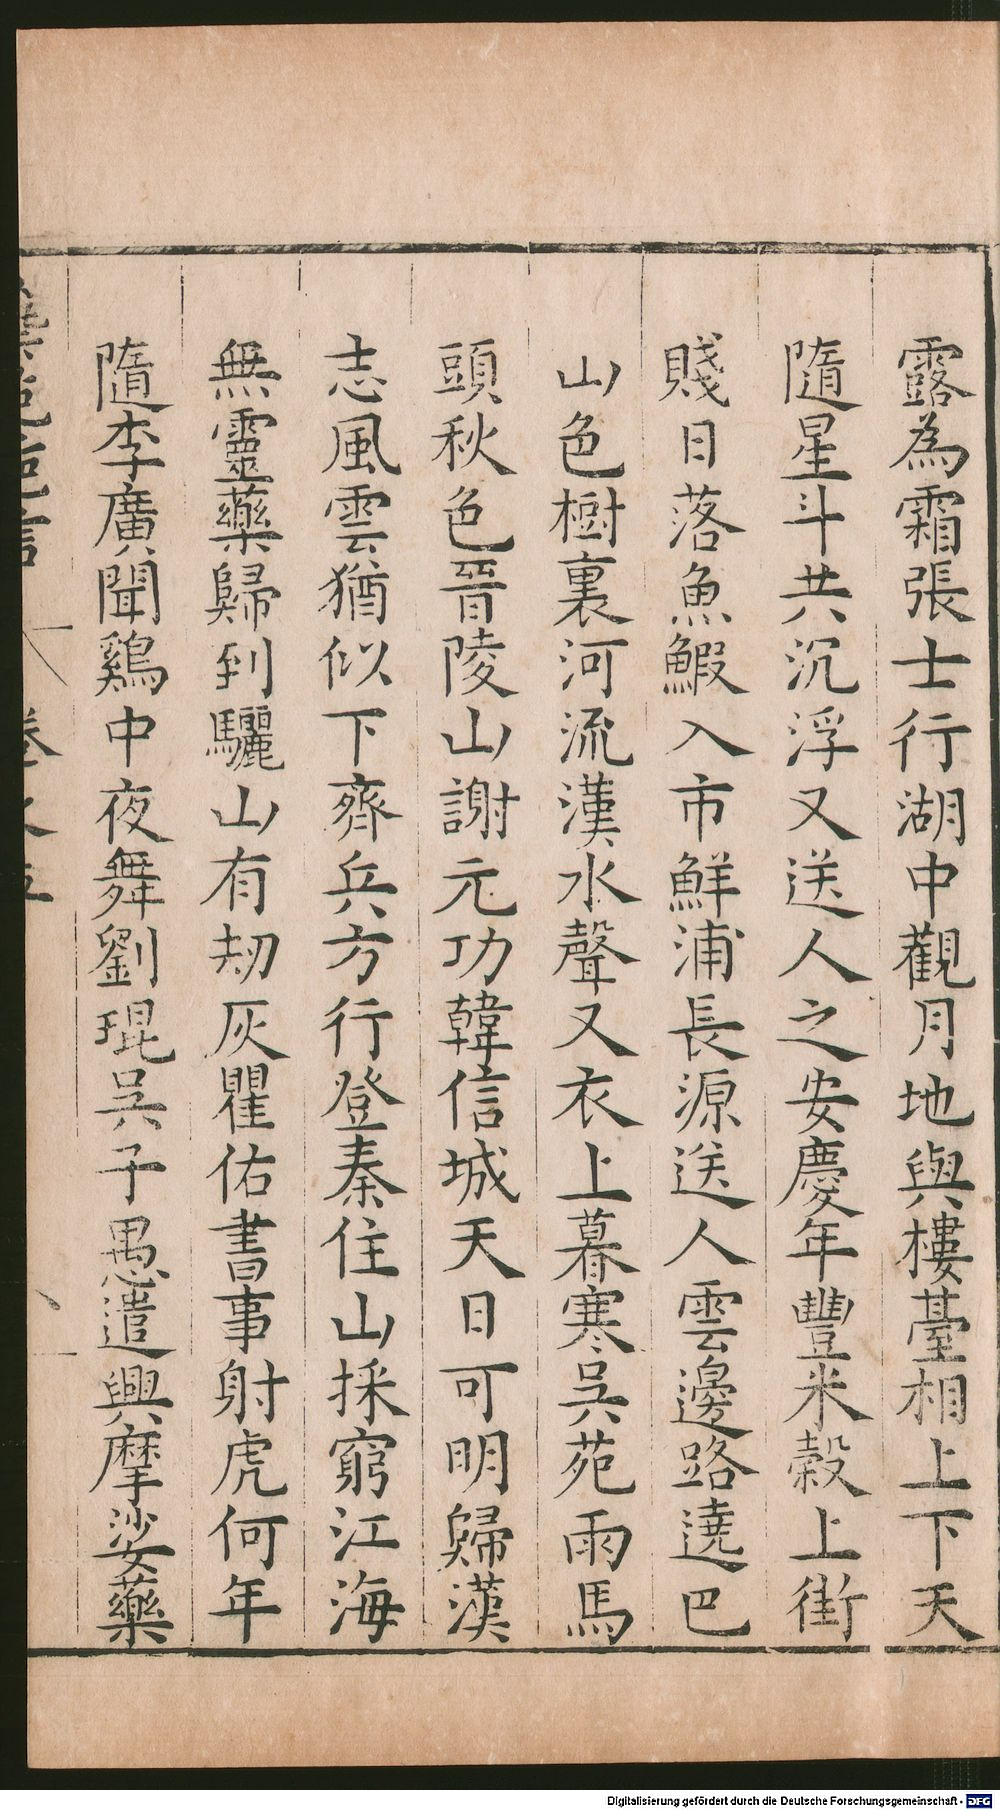 露為霜張士行湖中觀月地與樓臺相上下天
隨星斗共沉浮又送人之安慶年豐米榖上街
賤日落魚鰕入市鮮浦長源送人雲邊路遶巴
山色樹裏河流漢水聲又衣上暮寒吳苑雨馬
頭秋色晉陵山謝元功韓信城天日可明歸漢
志風雲猶似下齊兵方行登秦住山採窮江海
無靈藥歸到驪山有刼灰瞿佑書事射虎何年
隨李廣聞鷄中夜舞劉琨吳子愚遣興摩娑藥
藝苑巵言 卷之五
Digitalisierung gefördert durch die Deutsche Forschungsgemeinschaft - DFG